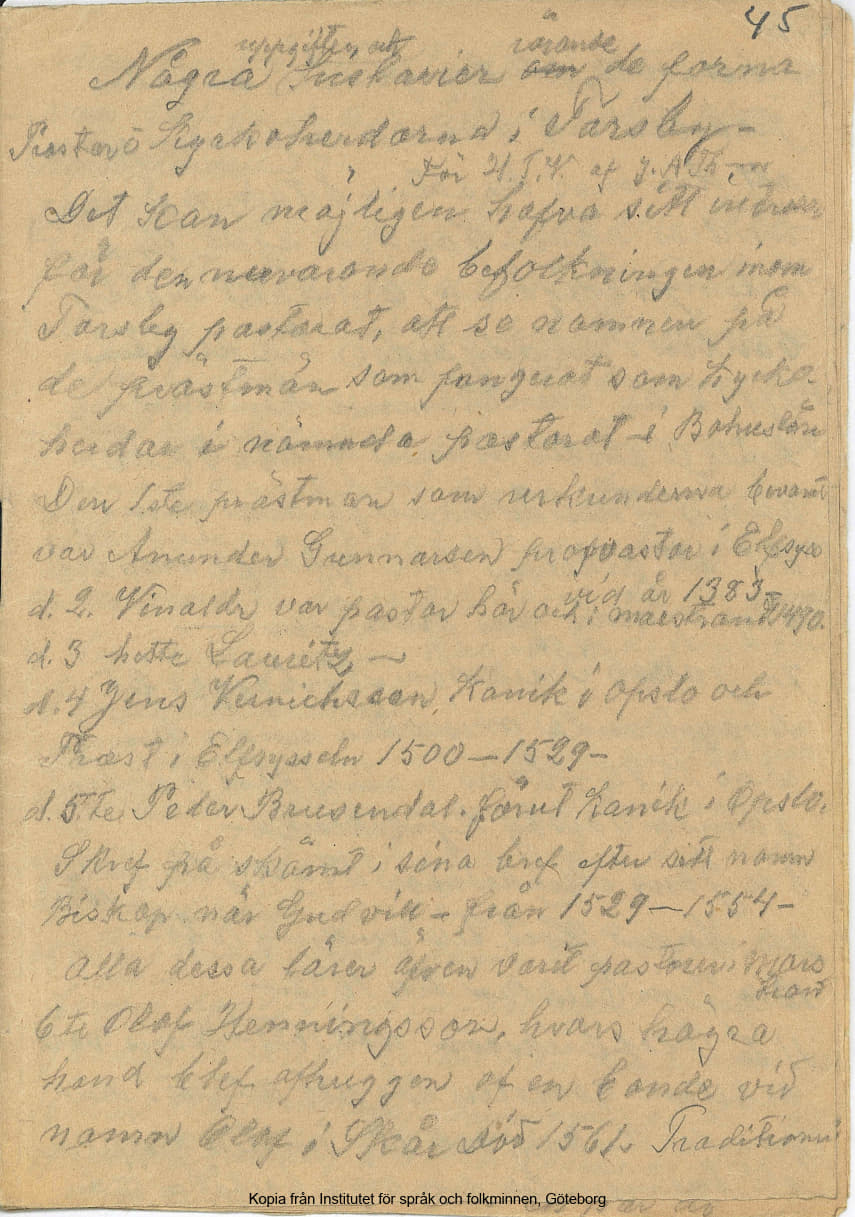 45
uppgifter, och rörande
Några om de forna
Prostar o Kyrkoherdarna i Torsby –
För H.T.V. af J.A Th–n
Det kan möjligen hafva sitt intresse
för den nuvarande befolkningen inom
Torsby pastorat, att se namnen på
de prästmän som fungerat som kyrko-
herdar i nämnda pastorat – i Bohuslän
Den 1ste prästman som urkunderna bevarat
var Amunder Gunnarsen profvastor i Elfsys
vid år 1383–
d. 2. Vinaldr var pastor här och i Marstrand 1470.
d. 3 hette Lauritz, –
d. 4 Jens kanik i Opslo och
Præst i Elfsysseln 1500–1529–
d. 5.te Peder Brusendal. förut kanik i Opslo.
Skref på skämt i sina bref efter sitt namn
Biskop når Gud vill – från 1529–1554–
Alla dessa lärer äfven varit pastorer i Mars
trand
6te Olof Henningsson, hvars högra
hand blef afhuggen af en bonde vid
namn Olof i Skår död 1561. Traditionen
Kopia från Institutet för språk och folkminnen, Göteborg